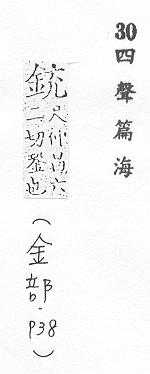 30四聲篇海
銃 尺仲昌六
二切銎也
（金部．P38）